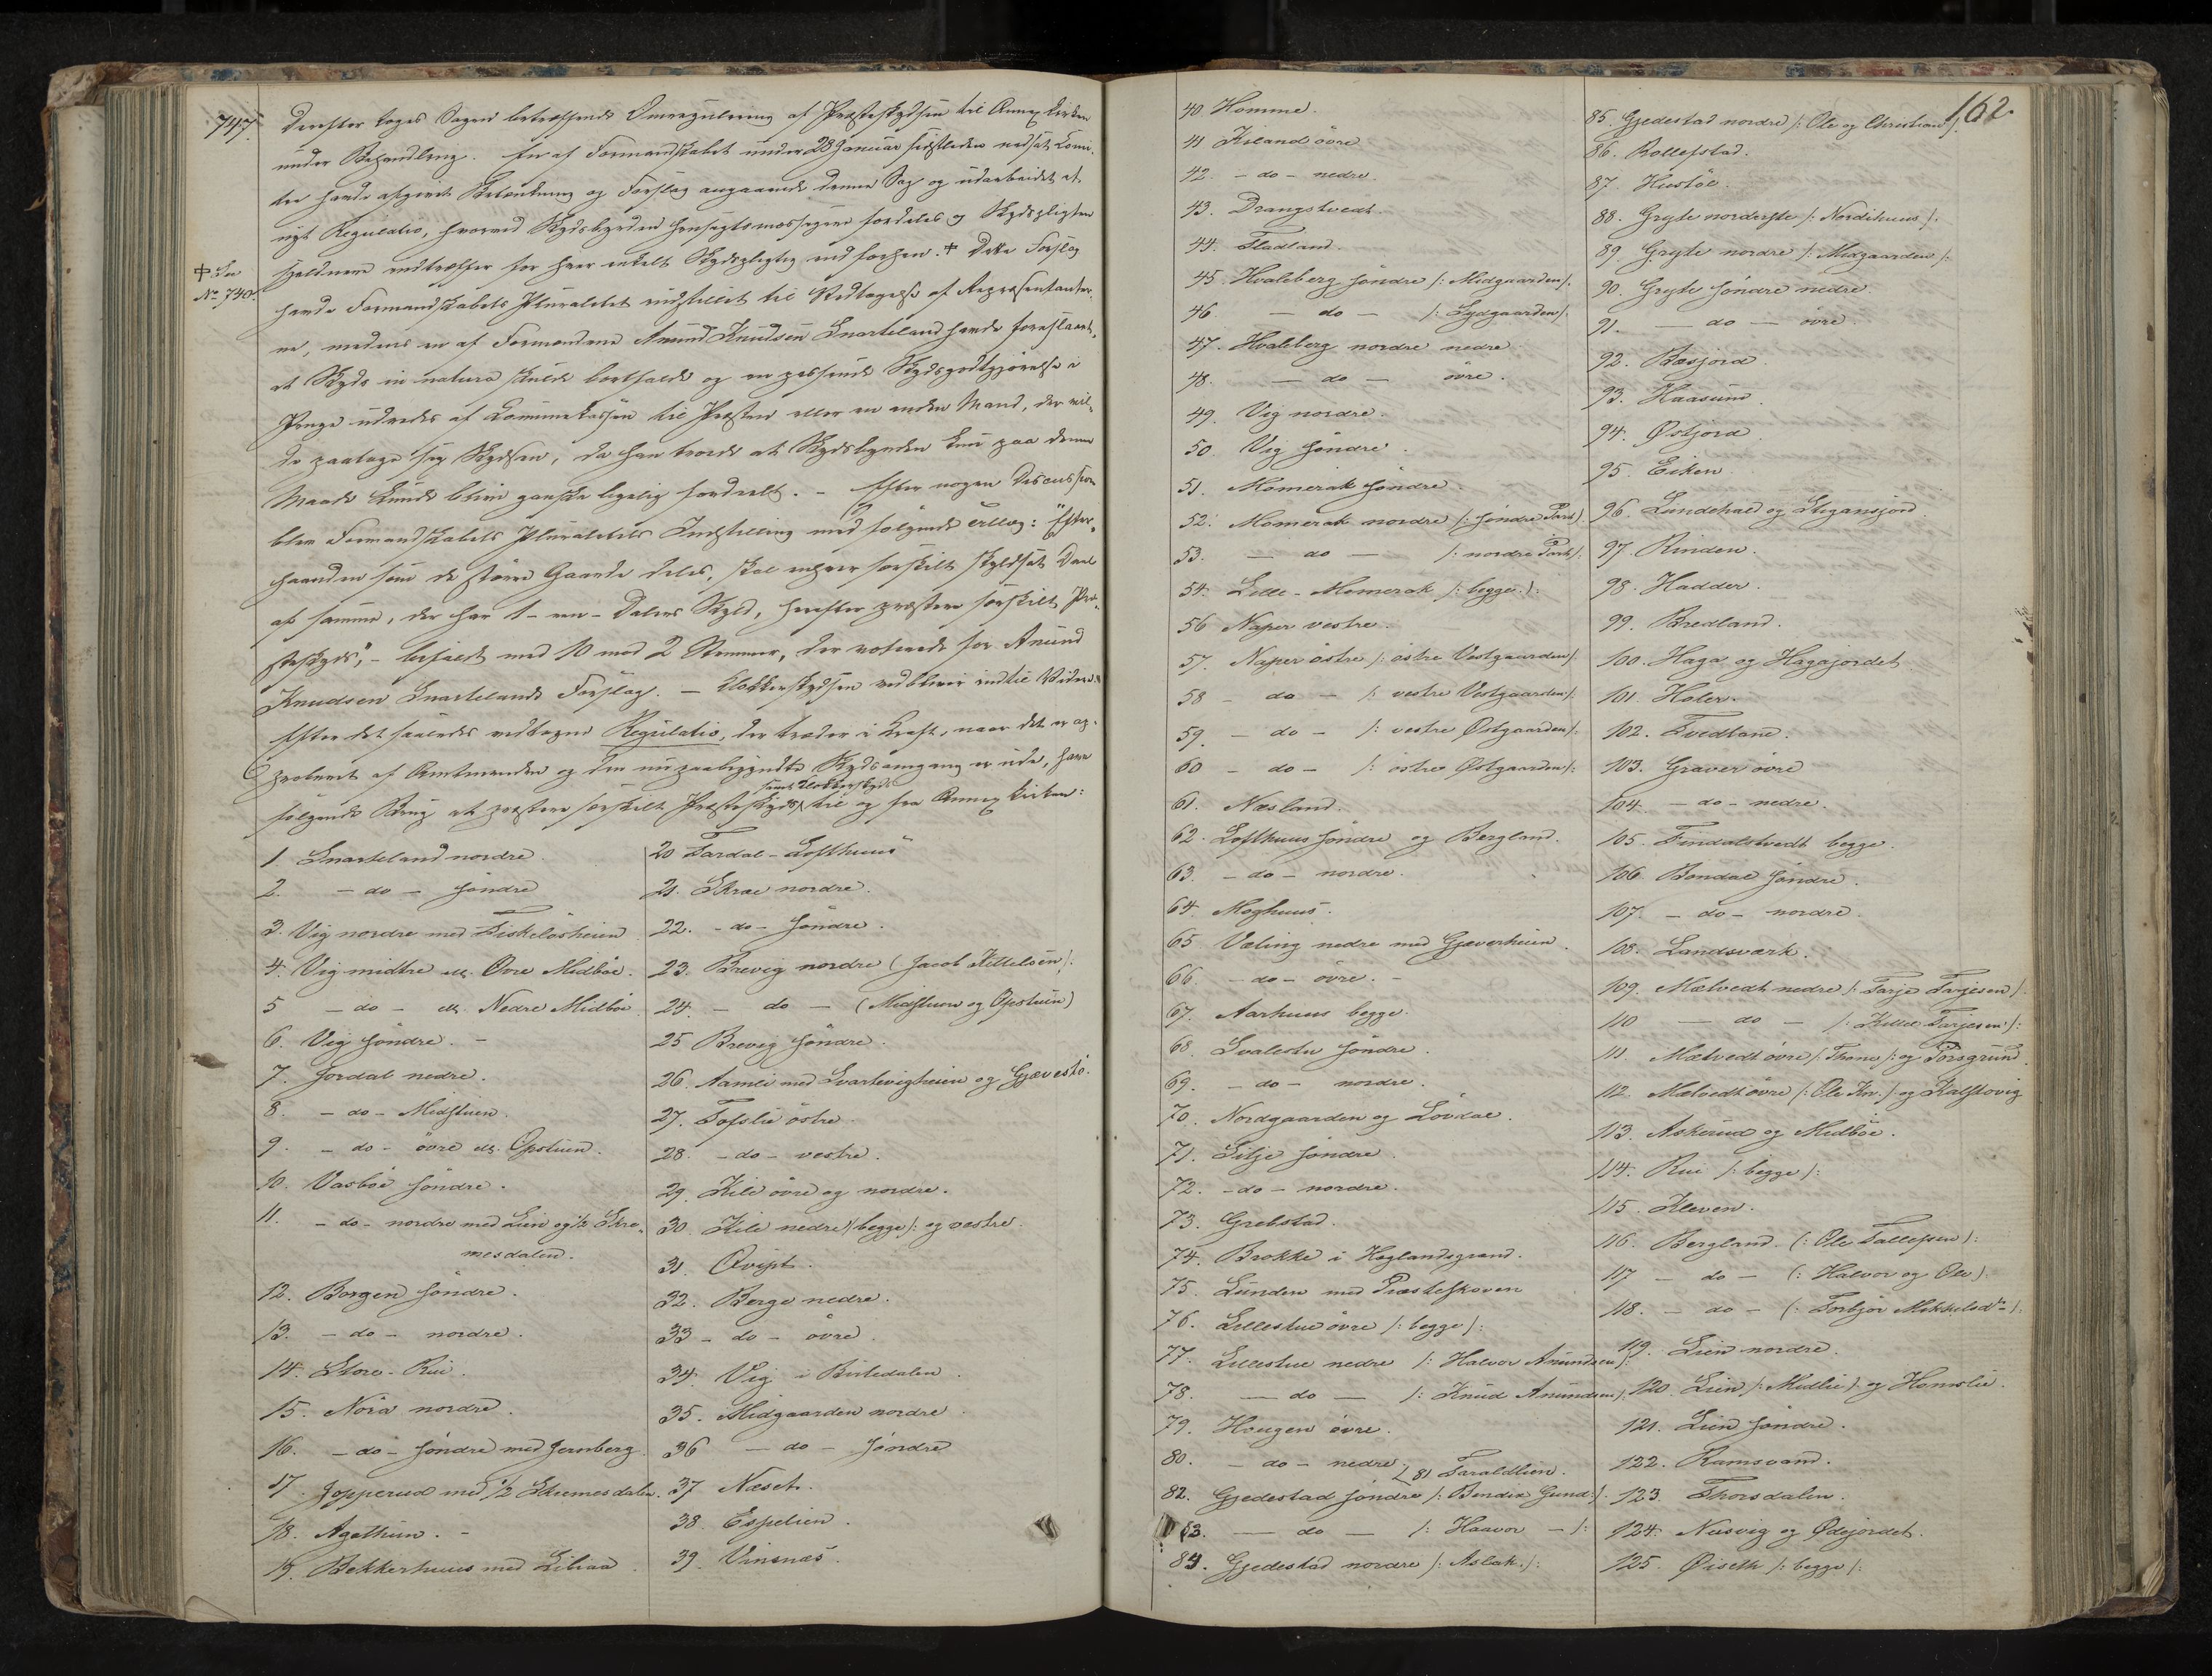 747. Derefter toges Sagen betræffende Omregulering af Præsteskydsen til Annexkirken
under Behandling. En af Formandskabet under 28 Januar sidstleden nedsat Komi-
tee havde afgivet Betænkning og Forslag angaaende denne Sag og udarbeidet et
nyt Regulativ, hvorved Skydsbyrden hensigtsmæssigere fordeles og Skydspligten
sjeldnere indtræffer for hver enkelt Skydspligtig end forhen. ✝ Dette Forslag
✝ See
No 740.
havde Formandskabets Pluralitet indstillet til Vedtagelse af Repræsentanter-
ne, medens en af Formændene Anund Knudsen Snarteland havde foreslaaet,
at Skyds in natura skulde bortfalde og en passende Skydsgodtgjørelse i
Penge udredes af Kommunekassen til Præsten eller en anden Mand, der vil-
de paatage sig Skydsen, da han troede at Skydsbyrden kun paa denne
Maade kunde blive ganske ligelig fordeelt. – Efter nogen Discussion
blev Formandskabets Pluralitets Indstilling med følgende Tillæg: "Efter-
haanden som de større Gaarde deles, skal enhver særskilt skyldsat Deel
af samme, der har 1 – een – Dalers Skyld, herefter præstere særskilt Præ-
steskyds", – bifaldt med 10 mod 2 Stemmer, der voterede for Anund
Knudsen Snartelands Forslag. – Klokkerskydsen vedbliver indtil Videre.
Efter det saaledes vedtagne Regulativ, der træder i Kraft, naar det er ap-
proberet af Amtmanden og den nu paabegyndte Skydsomgang er ude, have
samt Klokkerskyds
følgende Brug at præstere særskilt Præsteskyds til og fra Annexkirken:
1. Snarteland nordre
2. – do – søndre
3. Vig nordre med Fiskeløsheien
4. Vig midtre ell. Øvre Midbøe.
5 – do – ell. Nedre Midbøe
6. Vig søndre. –
7. Jordal nedre.
8. – do – Midstuen.
9. – do – øvre ell. Opstuen.
10. Vasbøe søndre.
11. – do – nordre med Lien og ½ Skre-
mesdalen.
12. Borgen søndre.
13. – do – nordre.
14. Store-Rui.
15. Nora nordre.
16. – do – søndre med Jernberg.
17. Jopperud med ½ Skremesdalen.
18. Agethun. –
19. Bekkerhuus med Liliaa.
20 Fardal-Lofthuus
21. Skrae nordre.
22. – do – søndre.
23. Brevig nordre (Jacob Kittelsen).
24. – do – (Midstuen og Opstuen)
25 Brevig søndre.
26. Aamli med Svartevigheien og Gjævestø.
27. Tofslie østre.
28. – do – vestre.
29. Kile øvre og nordre.
30. Kile nedre /:begge:/ og vestre.
31. Qvipt.
32. Berge nedre.
33 – do – øvre.
34. Vig i Birtedalen
35. Midgaarden nordre.
36 – do – søndre
37 Næset.
38. Espelien.
39. Vinsnæs.
162.
40 Homme.
41 Kiland øvre
42. – do – nedre.
43. Drangstvedt.
44. Fladland.
45. Hvaleberg søndre /: Midgaarden/.
46. – do – /: Sydgaarden/.
47. Hvaleberg nordre nedre
48. – do – øvre.
49. Vig nordre.
50. Vig søndre.
51. Momerak søndre.
52. Momerak nordre /: søndre Part)
53. – do – /: nordre Part/:
54. Lille-Momerak /: begge.):
56 Naper vestre.
57. Naper østre /: østre Vestgaarden/
58 – do – /: vestre Vestgaarden/:
59. – do – /: vestre Østgaarden/:
60 – do – /: østre Østgaarden/:
61. Næsland.
62. Lofthuus søndre og Bergland.
63. – do – nordre.
64. Moghuus.
65 Væling nedre med Gjæverheien.
66. – do – øvre. –
67. Aarhuus begge.
68. Svalestu søndre.
69. – do – nordre.
70. Nordgaarden og Løvdal.
71. Silje søndre.
72. – do – nordre.
73. Grebstad.
74. Brokke i Høglandsgrænd.
75. Lunden med Præsteskoven
76. Lillestue øvre /: begge/:
77. Lillestue nedre /: Halvor Anundsen/:
78. – do – /: Knud Anundsen/:
79. Hougen øvre.
80. – do – nedre.
81 Taraldlien.
82. Gjedestad søndre /: Bendix Gund:/.
83. – do – /: Haavor – /:
84. Gjedestad nordre /: Aslak./:
85. Gjedestad nordre /: Ole og Christian/.
86. Rollefstad.
87. Hustøl.
88. Gryte norderste /: Nordihuus/.
89. Gryte nordre /: Midgaarden/:
90. Gryte søndre nedre.
91. – do – øvre.
92. Bæsjord
93. Haasum.
94. Østjord
95. Eiken.
96. Lundehald og Stigansjord
97. Rinden.
98. Hadder.
99. Bredland.
100. Haga og Hagajordet
101. Holer.
102. Tvedtane.
103. Graver øvre
104. – do – nedre.
105. Findalstvedt begge.
106 Bondal søndre.
107. – do – nordre.
108. Landsværk.
109. Mælvedt nedre /: Tarje Tarjesen/.
110 – do – /: Kittil Tarjesen/:
111. Mælvedt øvre /: Thone/: og Torsgrund
112. Mælvedt øvre /: Ole Kn./: og Kalstovig
113. Askerud og Midbøe.
114. Rui /: begge/:
115. Kleven.
116. Bergland (: Ole Tallefsen):
117 – do – (: Halvor og Ole)
118. – do – (: Torbjør Mikkelsdtr.):
119. Lien nordre.
120. Lien /: Midlie/: og Homslie.
121. Lien søndre.
122. Ramsvand.
123. Thorsdalen.
124. Næsvig og Ødejordet.
125. Øiseth /: begge/: